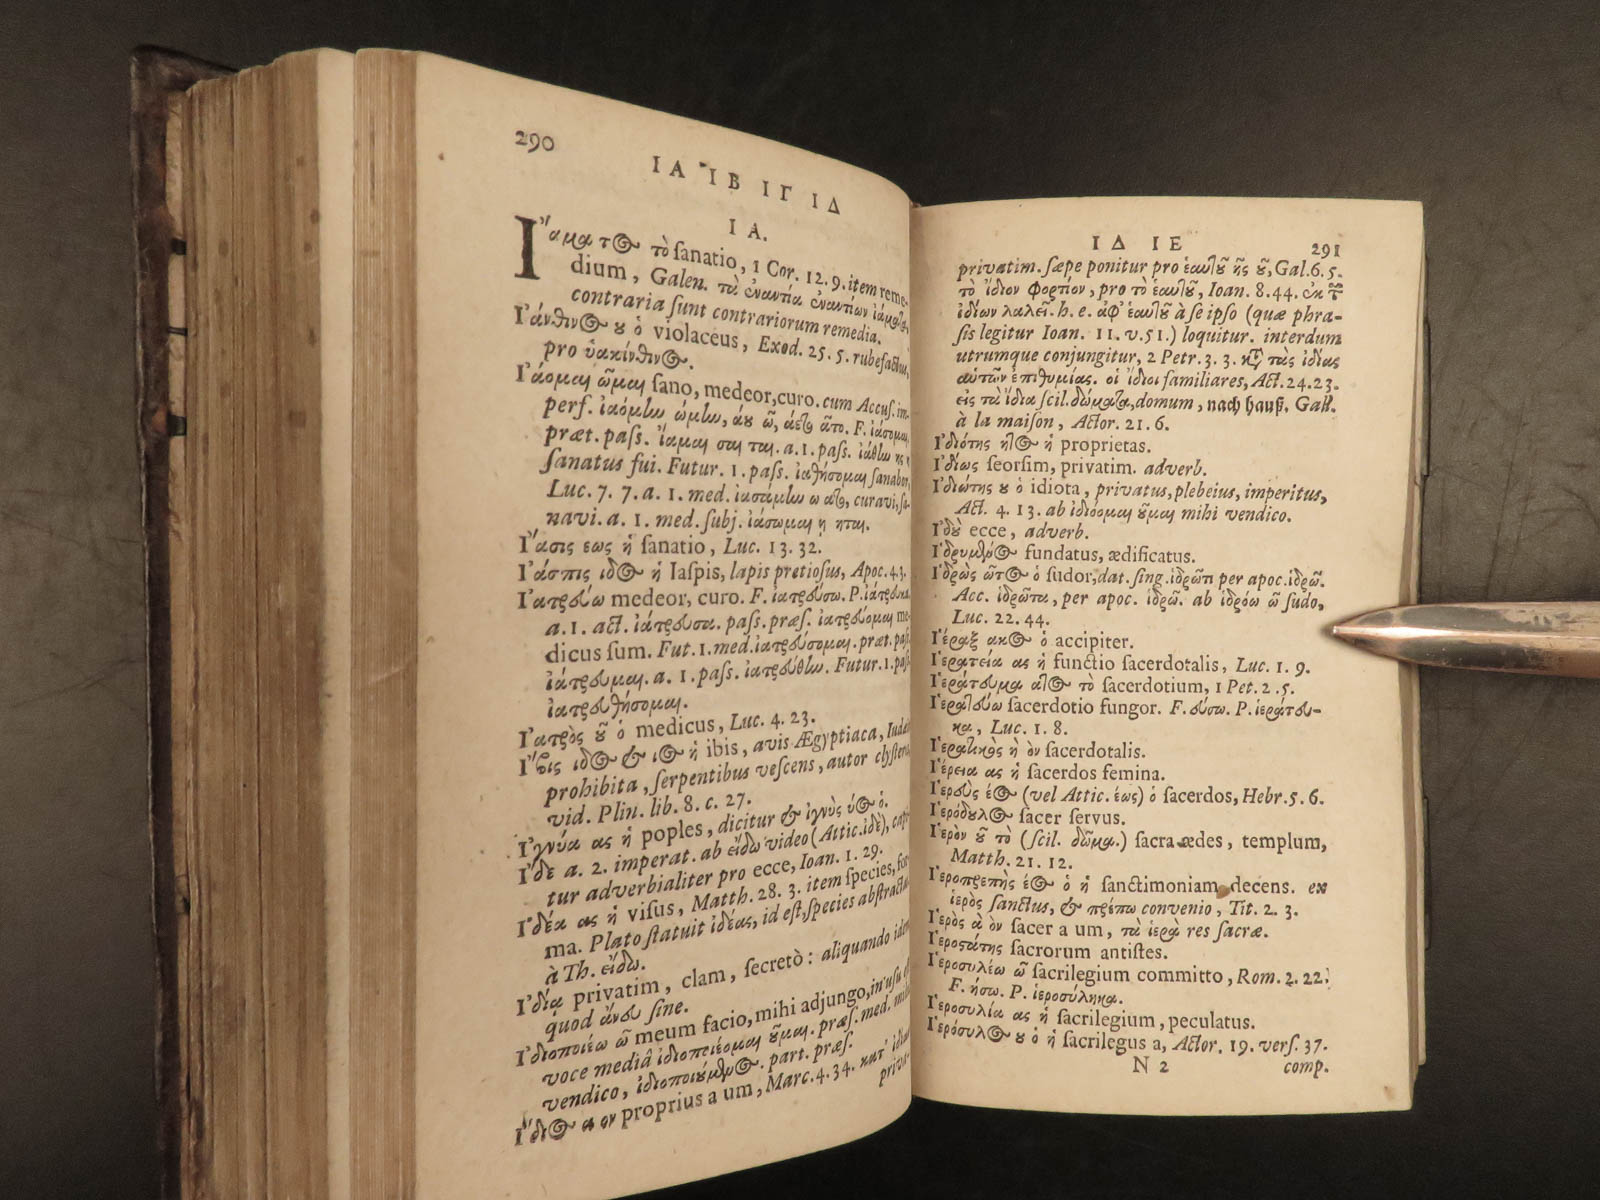 290
ΙΑ ΙΒ ΙΓ ΙΔ
ΙΑ.
Ἴαματος τὸ ſanatio, 1 Cor. 12. 9. item reme-
dium, Galen. τὰ ἐναντία ἐναντίων ἰάματα,
contraria ſunt contrariorum remedia.
Ἰάνθινος ου ὁ violaceus, Exod. 25. 5. rubefactus,
pro ὑακίνθινος.
Ἰάομαι ῶμαι ſano, medeor, curo. cum Accuſ. im-
perf. ἰαόμην ώμην, άου ῶ, άετο ᾶτο. F. ἰάσομαι,
præt. paſſ. ἴαμαι σαι ται. a. 1. paſſ. ἰάθην ης η
ſanatus fui. Futur. 1. paſſ. ἰαθήσομαι ſanabor,
Luc. 7. 7. a. 1. med. ἰασάμην ω ατο, curavi, ſa-
navi. a. 1. med. ſubj. ἰάσωμαι η ηται.
Ἴασις εως ἡ ſanatio, Luc. 13. 32.
Ἰάσπις ιδος ἡ Iaſpis, lapis pretioſus, Apoc. 4. 3.
Ἰατρεύω medeor, curo. F. ἰατρεύσω. P. ἰάτρευκα
a. 1. act. ἰάτρευσα. paſſ. præſ. ἰατρεύομαι me-
dicus ſum. Fut. 1. med. ἰατρεύσομαι. præt. paſſ.
ἰάτρευμαι. a. 1. paſſ. ἰατρεύθην. Futur. 1. paſſ.
ἰατρευθήσομαι.
Ἰατρὸς οῦ ὁ medicus, Luc. 4. 23.
Ἴβις ιδος & ιος ἡ ibis, avis Ægyptiaca,
prohibita, ſerpentibus veſcens, autor clyſteris
vid. Plin. lib. 8. c. 27.
Ἰγνύα ας ἡ poples, dicitur & ἰγνὺς ύος ὁ.
Ἴδε a. 2. imperat. ab εἴδω video (Attic. ἰδὲ), capi-
tur adverbialiter pro ecce, Ioan. 1. 29.
Ἰδέα ας ἡ viſus, Matth. 28. 3. item ſpecies, for-
ma. Plato ſtatuit ἰδέας, id eſt, ſpecies abſtractas
à Th. εἴδω.
Ἰδίᾳ privatim, clam, ſecretò: aliquando idem
quod ἄνευ ſine.
Ἰδιοποιέω ῶ meum facio, mihi adjungo, in uſu eſt
voce mediâ ἰδιοποιέομαι οῦμαι. præſ. med. mihi
vendico, ἰδιοποιούμενος. part. præſ.
Ἴδιος α ον proprius a um, Marc. 4. 34. κατ' ἰδίαν
priva-
ΙΔ ΙΕ
291
privatim. ſæpe ponitur pro ἑαυτοῦ ῆς οῦ, Gal. 6. 5.
τὸ ἴδιον φορτίον, pro τὸ ἑαυτοῦ, Ioan. 8. 44. ἐκ τῶν
ἰδίων λαλεῖ. h. e. ἀφ' ἑαυτοῦ à ſe ipſo (quæ phra-
ſis legitur Ioan. 11. v. 51.) loquitur. interdum
utrumque conjungitur, 2 Petr. 3. 3. κατὰ τὰς ἰδίας
αὑτῶν ἐπιθυμίας. οἱ ἴδιοι familiares, Act. 24. 23.
εἰς τὰ ἴδια ſcil. δώματα, domum, nach hauß. Gall.
à la maiſon, Actor. 21. 6.
Ἰδιότης ητος ἡ proprietas.
Ἰδίως ſeorſim, privatim. adverb.
Ἰδιώτης ου ὁ idiota, privatus, plebeius, imperitus,
Act. 4. 13. ab ἰδιόομαι οῦμαι mihi vendico.
Ἰδοὺ ecce, adverb.
Ἱδρυμένος fundatus, ædificatus.
Ἱδρὼς ῶτος ὁ ſudor, dat. ſing. ἱδρῶτι per apoc. ἱδρῶ.
Acc. ἱδρῶτα, per apoc. ἱδρῶ. ab ἱδρόω ῶ ſudo,
Luc. 22. 44.
Ἱέραξ ακος ὁ accipiter.
Ἱερατεία ας ἡ functio ſacerdotalis, Luc. 1. 9.
Ἱεράτευμα ατος τὸ ſacerdotium, 1 Pet. 2. 5.
Ἱερατεύω ſacerdotio fungor. F. εύσω. P. ἱεράτευ-
κα, Luc. 1. 8.
Ἱερατικὸς ὴ ὸν ſacerdotalis.
Ἱέρεια ας ἡ ſacerdos femina.
Ἱερεὺς έος (vel Attic. έως) ὁ ſacerdos, Hebr. 5. 6.
Ἱερόδουλος ſacer ſervus.
Ἱερὸν οῦ τὸ (ſcil. δῶμα.) ſacra ædes, templum,
Matth. 21. 12.
Ἱεροπρεπὴς έος ὁ ἡ ſanctimoniam decens. ex
ἱερὸς ſanctus, & πρέπω convenio, Tit. 2. 3.
Ἱερὸς ὰ ὸν ſacer a um, τὰ ἱερὰ res ſacræ.
Ἱεροστάτης ſacrorum antiſtes.
Ἱεροσυλέω ῶ ſacrilegium committo, Rom. 2. 22.
F. ήσω. P. ἱεροσύληκα.
Ἱεροσυλία ας ἡ ſacrilegium, peculatus.
Ἱερόσυλος ου ὁ ἡ ſacrilegus a, Actor. 19. verſ. 37.
N 2
comp.